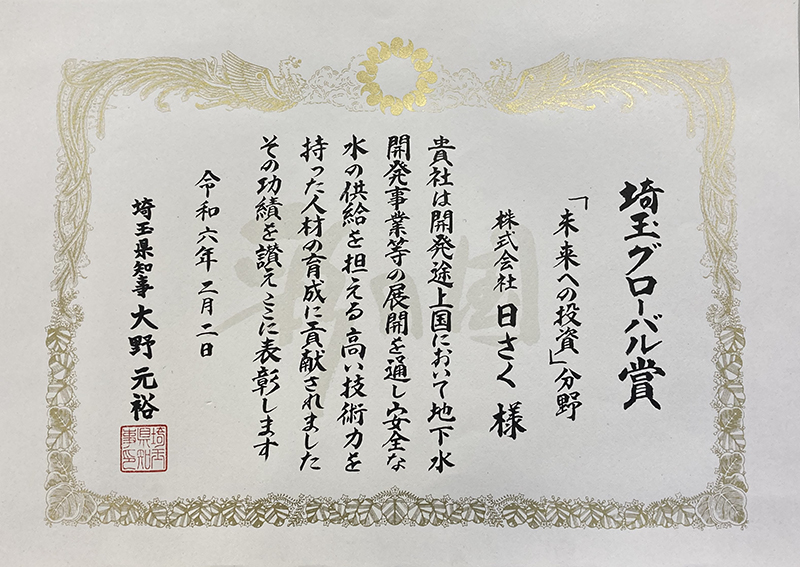 埼玉グローバル賞
「未来への投資」分野
株式会社 日さく 様
貴社は開発途上国において地下水
開発事業等の展開を通し安全な
水の供給を担える高い技術力を
持った人材の育成に貢献されました
その功績を讃えここに表彰します
令和六年二月二日
埼玉県知事 大野元裕
埼玉
県知
事印